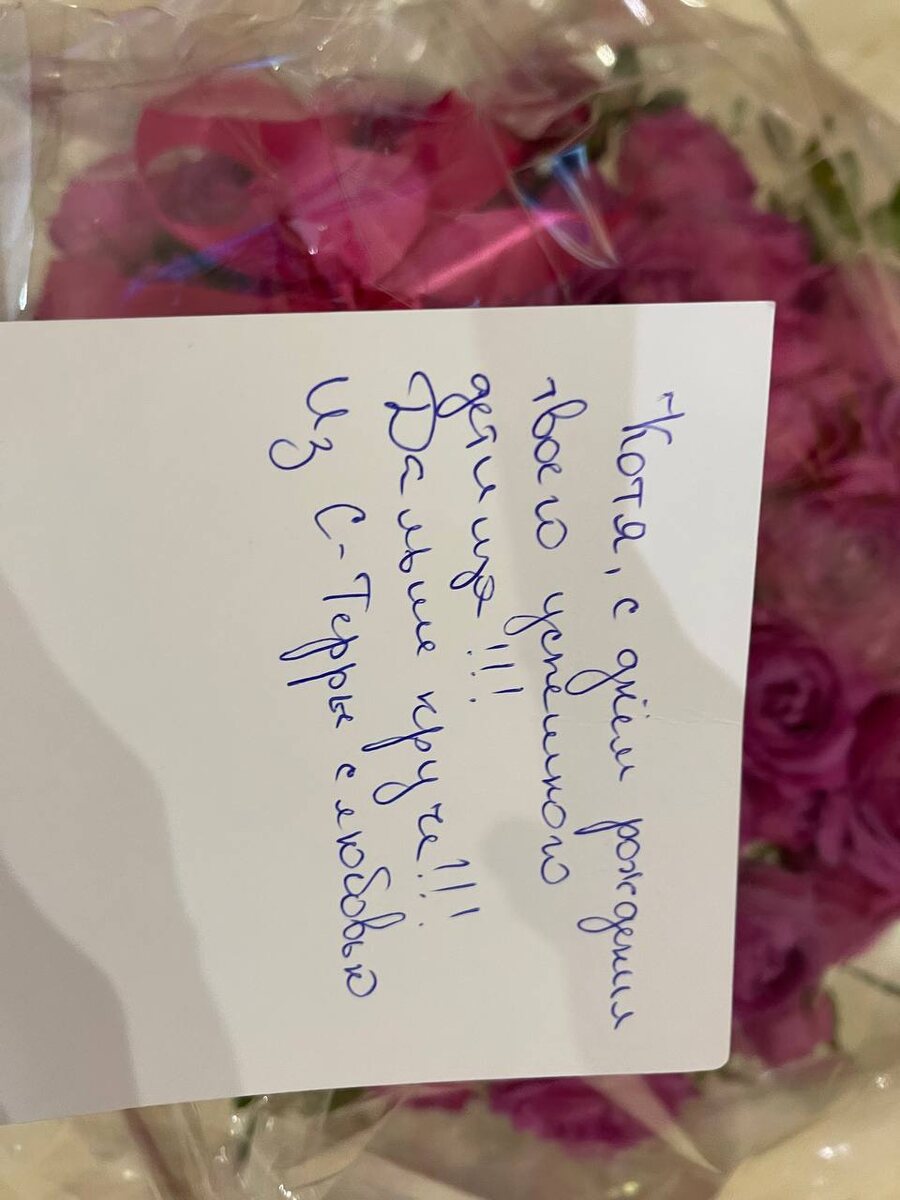 "Котя, с днём рождения
твоего успешного
детища!!!
Дальше круче!!!
Из С-Терры с любовью